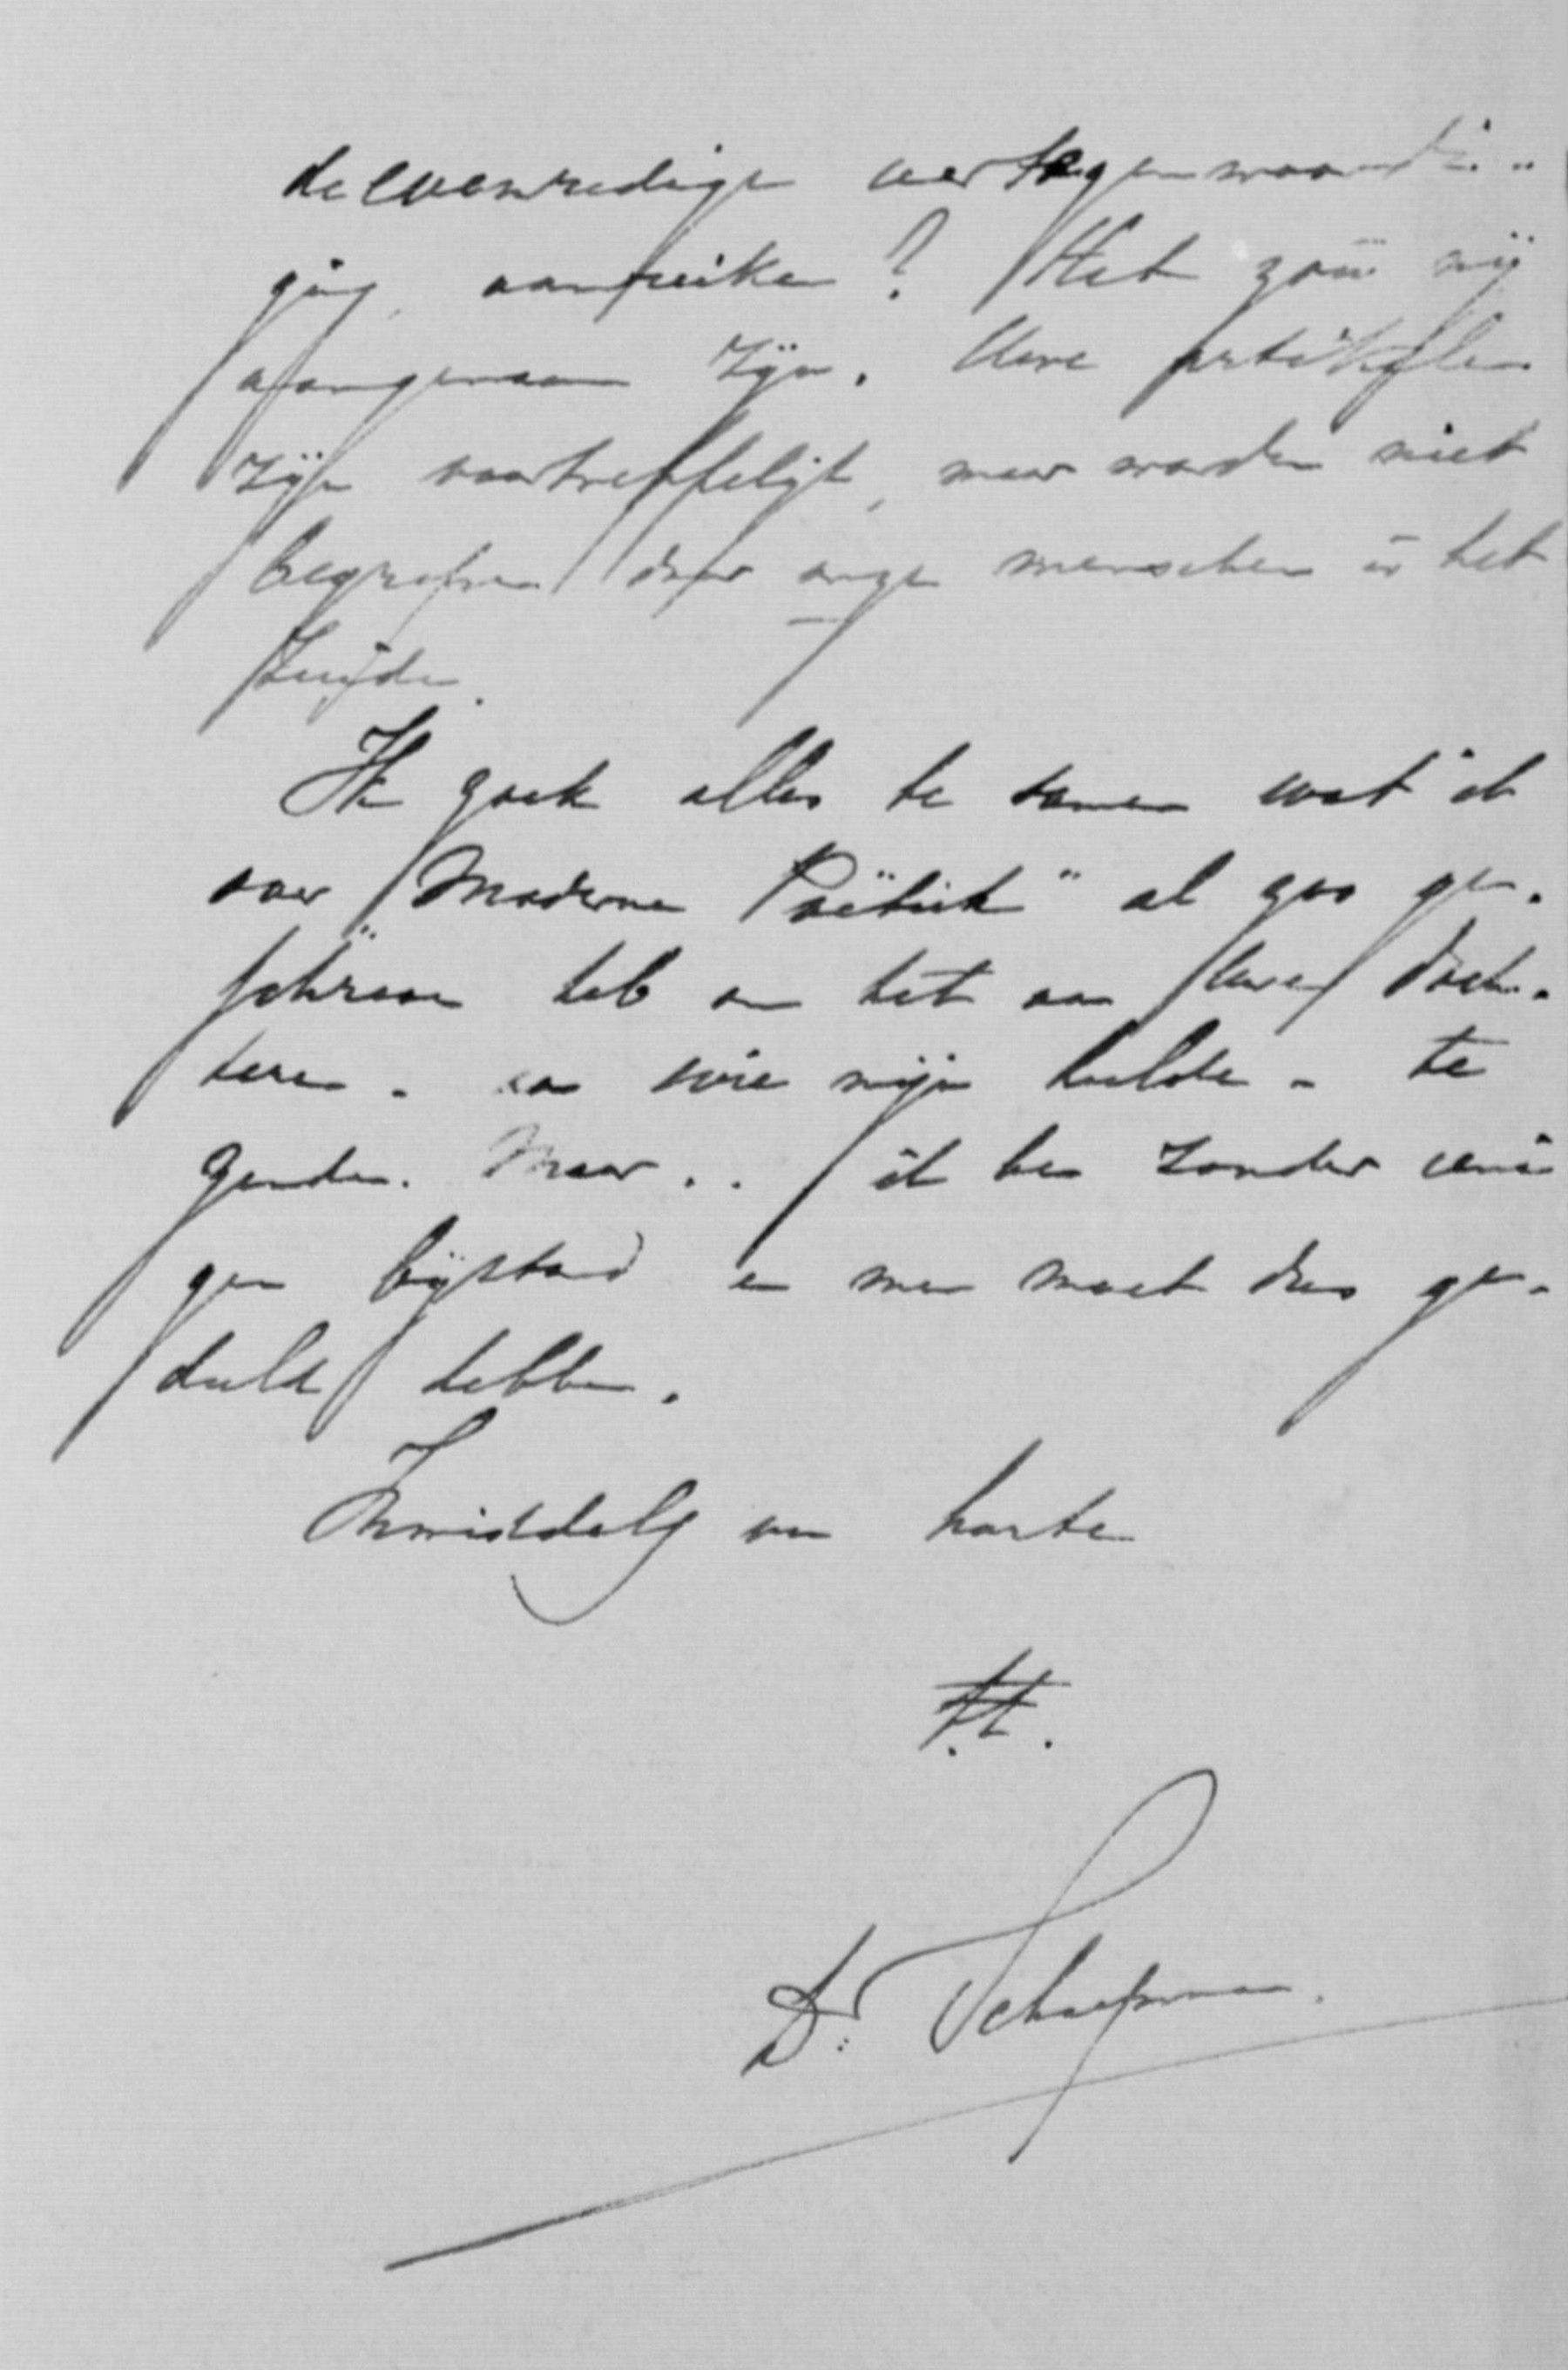 de evenredige vertegenwoordi-
ging aanprijken? Het zou mij
aangenaam zijn. Uwe artikelen
zijn voortreffelijk, maar worden niet
begrepen door onze menschen in het
Zuijden.
Ik zoek alles te samen wat ik
over "Moderne Poëtiek" al zoo ge-
schreven heb om het aan Uwe doch-
tere - aan wie mijn hulde - te
zenden. Maar .. ik ben zonder eeni
gen bijstand en men moet dus ge-
duld hebben.
Inmiddels van harte
t.t.
Dr. Schaepman.